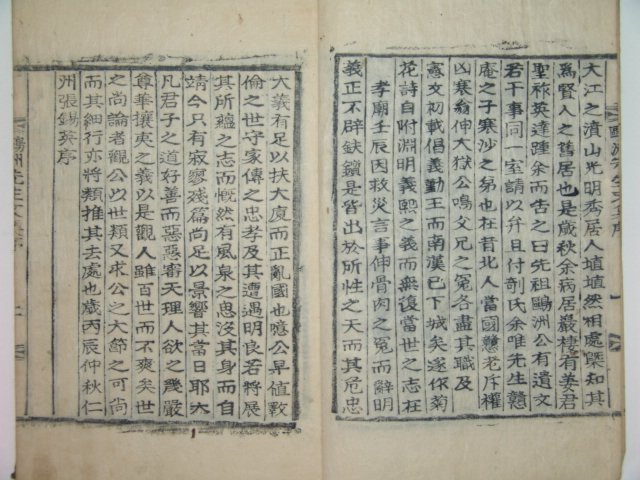 大江之濆山光明秀居人埴埴然相處槩知其
爲賢人之舊居也是歲秋余病居巖棲有姜君
聖祚英達踵余而告之曰先祖鷗洲公有遺文
若干事同一室請以弁且付剞氏余唯先生戇
庵之子寒沙之弟也在昔北人當國戇老斥權
凶寒翁伸大獄公鳴父兄之冤各盡其職及
憲文初載倡義勤王而南漢已下城矣遂作菊
花詩自附淵明義熙之義而無復當世之志在
孝廟壬辰因救災言事伸骨肉之冤而辭明
義正不辟鈇鑕是皆出於所性之天而其危忠
大義有足以扶大廈而正亂國也噫公早值斁
倫之世守家傳之忠孝及其遭遇明良若將展
其所蘊之志而慨然有風泉之思沒其身而自
靖今只有寂寥殘篇尚足以景響其當日耶大
凡君子之道好善而惡惡審天理人欲之幾嚴
尊華攘夷之義以是觀人雖百世而不爽矣世
之尚論者觀公以此類又求公之大節之可尚
而其細行亦將類推其去處也歲丙辰仲秋仁
州張錫英序